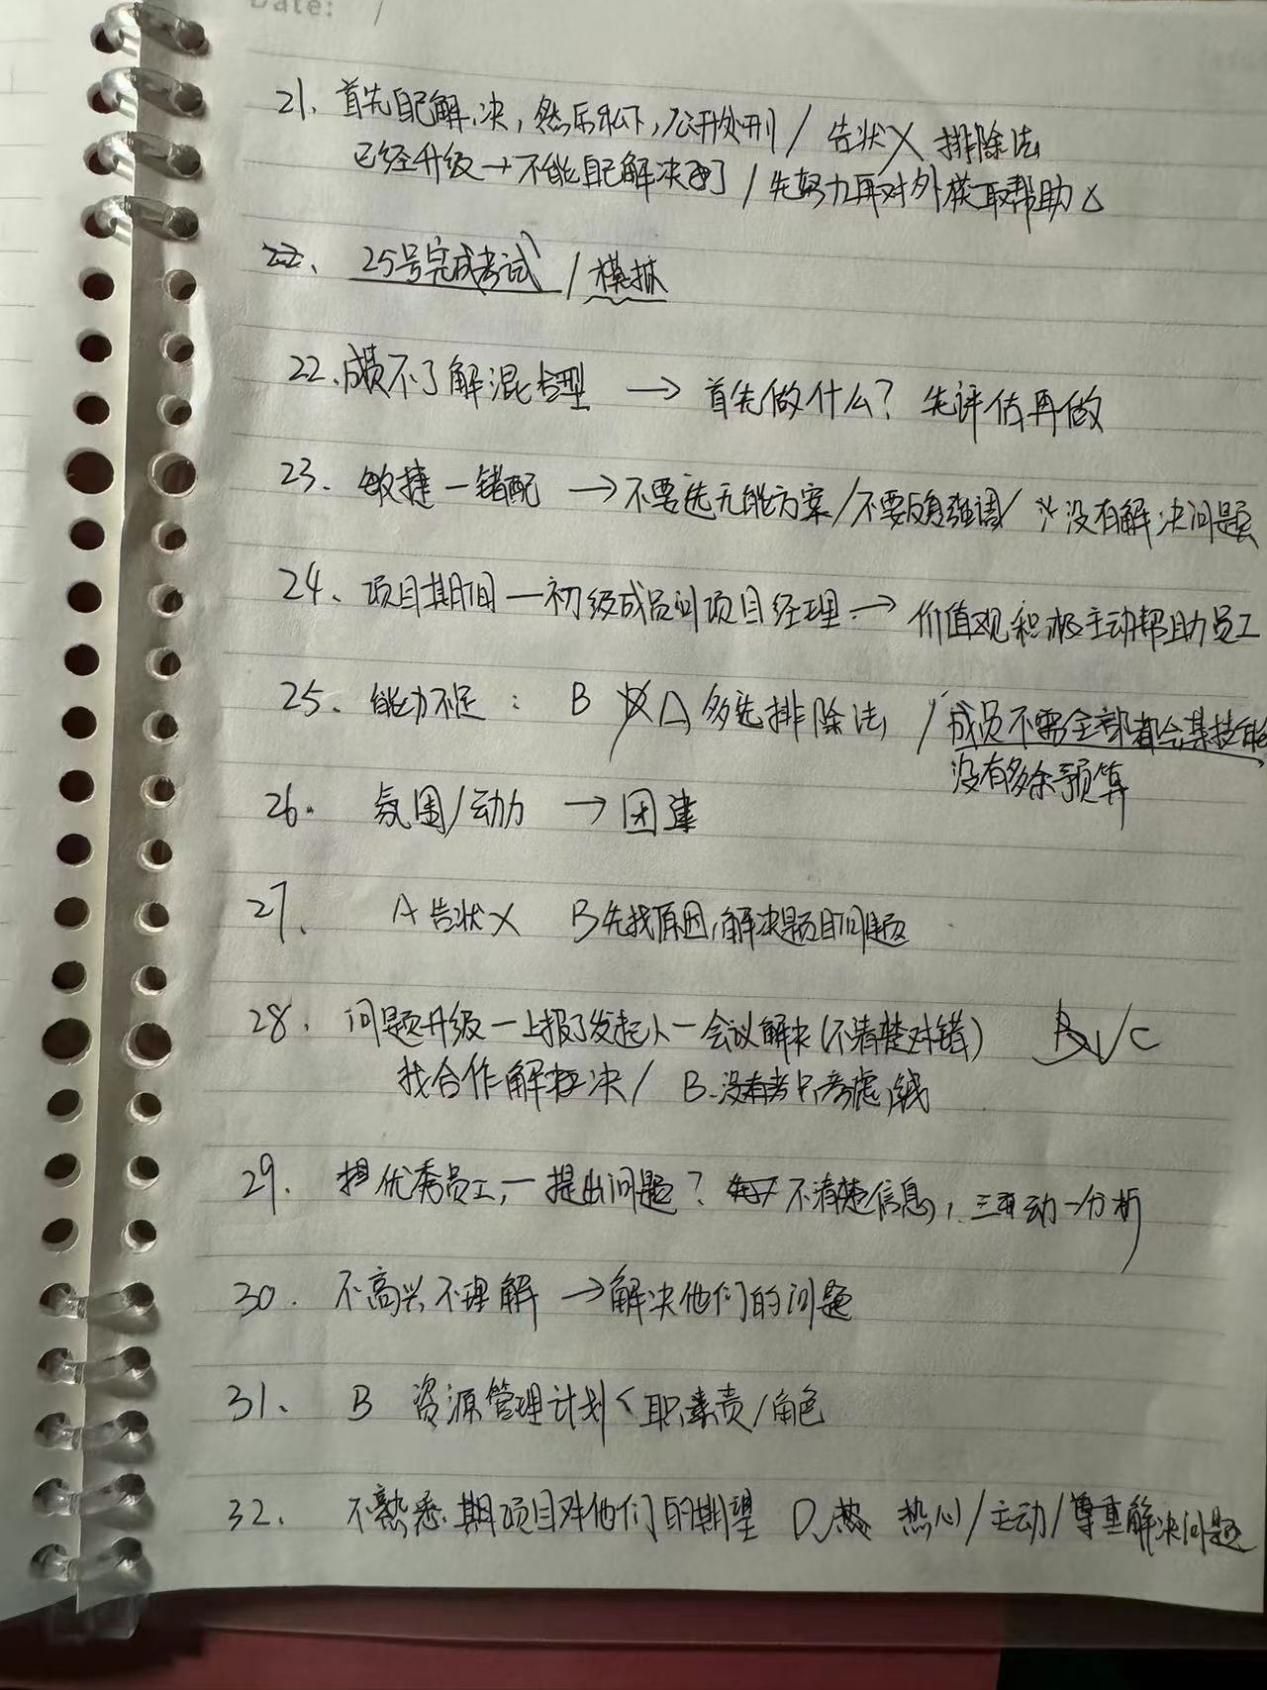 Date: /
21. 首先自己解决，然后私下，公开处刑 / 告状X 排除法
已经升级→不能自己解决了 / 先努力再对外获取帮助△
22、25号完成考试 / 模拟
22.成员不了解混合型 → 首先做什么？先评估再做
23. 敏捷一错配 → 不要选无能方案/不要反复强调/ 没有解决问题
24、项目期间一初级成员问项目经理 → 价值观积极主动帮助员工
25、能力不足： B A 多选排除法 / 成员不需全部都会某技能
没有多余预算
26. 氛围/动力 → 团建
27. A告状X B先找原因,解决题目问题
28. 问题升级一上报了发起人一会议解决(不清楚对错) B√C
找合作解决/ B.没有考虑
29. 优秀员工,一提出问题？不清楚信息, 动一分析
30. 不高兴不理解 → 解决他们的问题
31、 B 资源管理计划<职责/角色
32. 不熟悉 项目对他们的期望 D 热心/主动/尊重解决问题